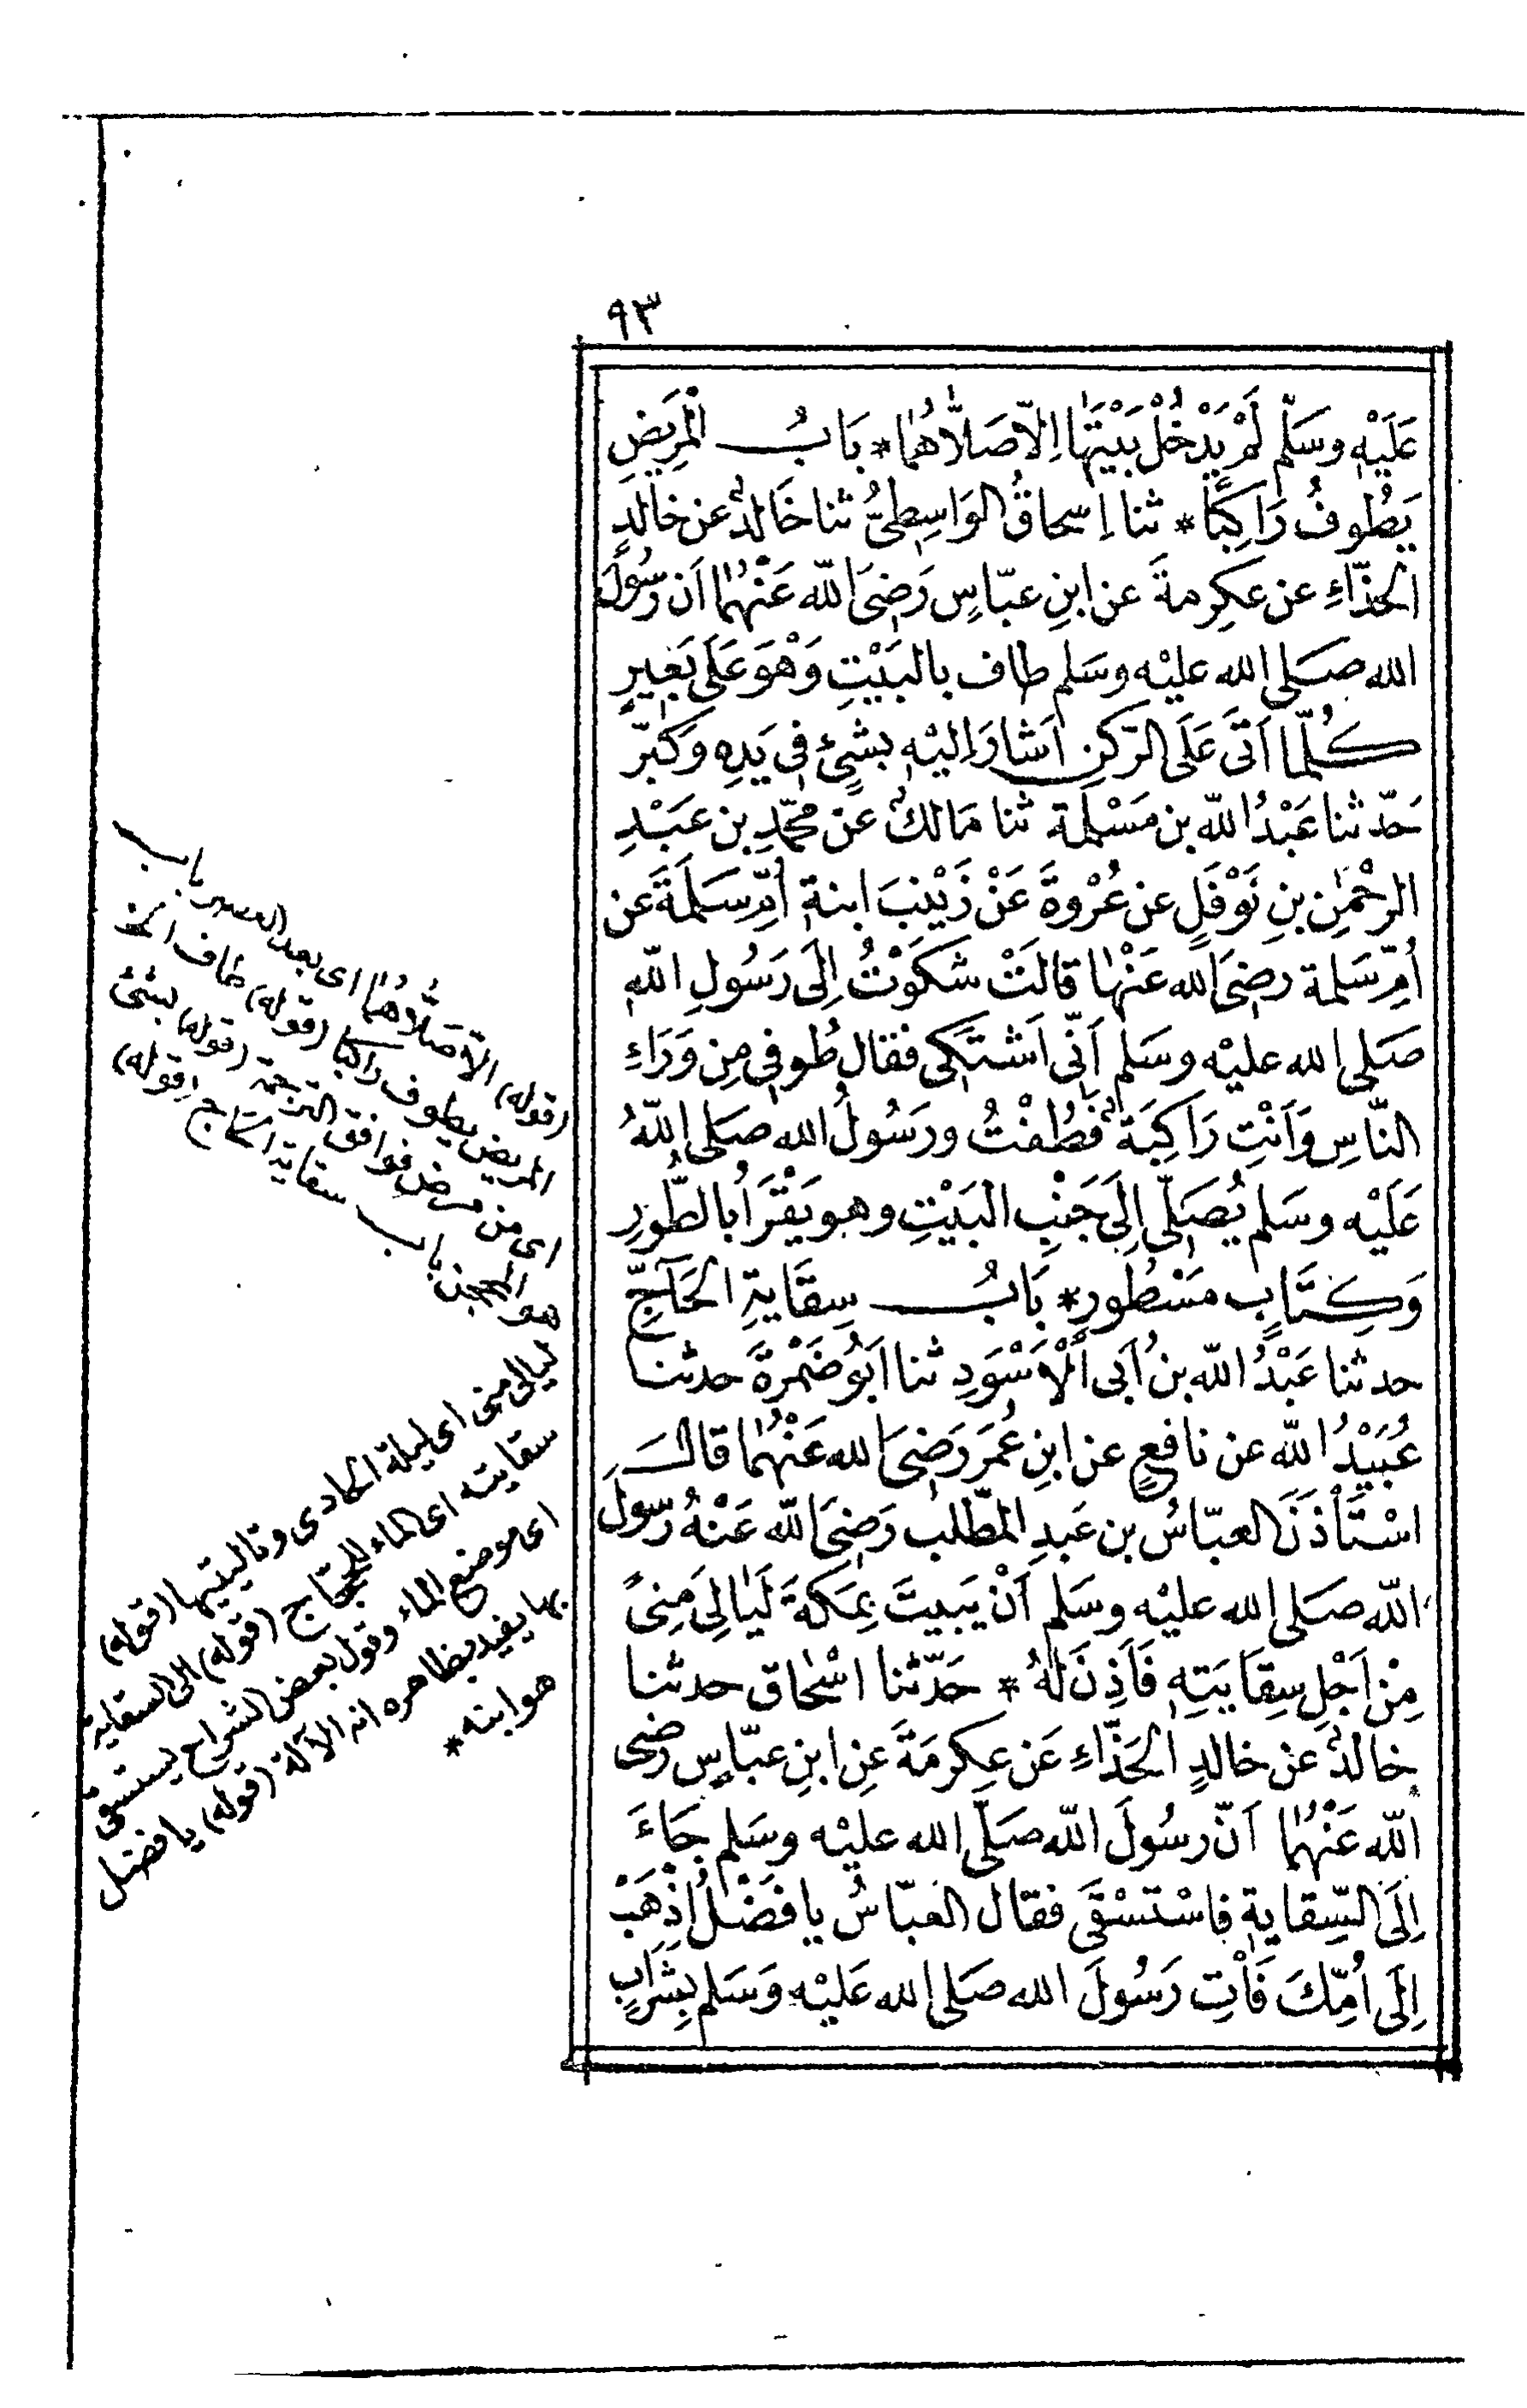 ٩٣
عَلَيْهِ وسَلّم لَمْ يَدْخُلْ بَيْتَهَا اِلّا صَلَّاهُمَا * بَابُ الْمَرِيضِ
يَطُوفُ رَاكِبًا * ثنا اِسحاقُ الوَاسِطِىُّ ثنا خَالدٌ عن خالدٍ
الحذّاءِ عن عكِرمةَ عن ابنِ عبّاسٍ رَضِىَ اللّه عَنْهُمَا اَن رسُولَ
الله صَلى الله عليْه وسَلم طاف بالبَيْتِ وَهْوَ عَلَى بَعِيرٍ
كُلّما اَتَى عَلَى الرّكنِ اَشارَ اِليْهِ بشىٍٔ فِى يَدِهِ وَكَبّر
حَدّثنا عَبْدُ اللّه بن مَسْلمة ثنا مَالكٌ عن محمّدِ بن عَبْدِ
الرحْمٰنِ بنِ نَوْفَلٍ عن عُرْوةَ عَنْ زَيْنِبَ ابنةِ اُمِّ سَلمةَ عن
اُمِّ سَلمة رضِىَ الله عَنْهَا قالَتْ شكَوْتُ اِلَى رَسُولِ اللّه
صَلى الله عليْه وسَلم اَنّى اَشتَكى فقال طُوفِى مِن وَرَاءِ
النّاسِ وَاَنْتِ رَاكِبَةٌ فَطُفْتُ ورَسُولُ الله صَلى اللّهُ
عَلَيْه وسَلم يُصَلّى اِلَى جَنْبِ البَيْتِ وهو يَقْرَأُ بالطُّورِ
وَكِتَابٍ مَسْطُورٍ * بَابُ سِقَايَةِ الحَاجِّ
حدثنا عَبْدُ اللّه بنُ اَبى اْلاَسْوَدِ ثنا اَبُو ضَمْرةَ حدثنا
عُبَيْدُ اللّه عن نافعٍ عن ابنِ عُمَرَ رَضِىَ الله عَنْهُمَا قالَ
اسْتَأْذَنَ العبّاسُ بن عَبدِ المطّلب رَضِىَ اللّه عَنْهُ رسولَ
اللّه صَلى الله عليْه وسَلم اَنْ يَبيتَ بِمَكةَ لَيَالِىَ مِنىً
مِنْ اَجْلِ سِقايَتِهِ فَاَذِنَ لَهُ * حَدّثنا اسْحٰاق حدثنا
خالدٌ عن خالدٍ الحَذّاءِ عَن عِكرمَةَ عَنِ ابنِ عبّاسٍ رضِى
اللّه عَنْهُمَا اَنّ رسُولَ اللّه صَلّى الله عليْه وسَلم جَاءَ
اِلَى السّقايةِ فاسْتسْقَى فقال العبّاسُ يا فَضْلُ اذْهَبْ
اِلَى اُمِّكَ فَأْتِ رَسُولَ الله صَلى الله عَليْه وَسَلم بِشَرابٍ
(قوله) الّا صَلّاهُمَا اى بعد العصر باب
المريض يطوف راكبا (قوله) طاف الخ
اى من مرض فوافق الترجمة (قوله) بشىٔ
هو المحجن باب سقاية الحاج (قوله)
ليالى منى اى ليلة الحادى وتالييتيها (قوله)
سقايته اى الماء للحجاج (قوله) الى السقاية
اى موضع الماء وقول بعض الشراح يستسقى
بها يفيد بظاهره انه الآلة (قوله) يا فضل
هو ابنه *